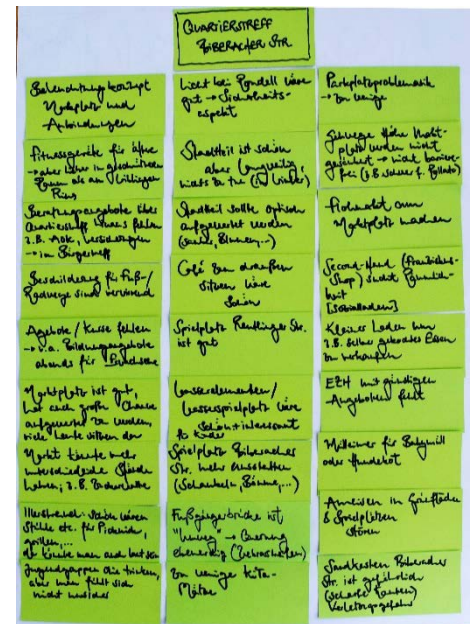 QUARTIERSTREFF
BIBERACHER STR.
Beleuchtungskonzept
Marktplatz und
Anbindungen
Fitnessgeräte für Ältere
→ aber lieber in geschütztem
Raum als am
Ring
Beratungsangebote über
Quartierstreff hinaus fehlen
z.B. AOK, Versicherungen
→ im Bürgertreff
Beschilderung für Fuß-/
Radwege sind verwirrend
Angebote / Kurse fehlen
→ v.a. Bildungsangebote
abends für
Marktplatz ist gut,
hat auch große Chance
aufgewertet zu werden,
viele Leute
Markt könnte mehr
unterschiedliche Stände
haben, z.B.
Illerstrand: schön wären
Stühle etc. für Picknick,
grillen,...
Jugendgruppen die trinken,
aber man fühlt sich
nicht unsicher
Licht bei Rondell wäre
gut → Sicherheits-
aspekt
Stadtteil ist schön
aber langweilig
nichts zu tun (für Kinder)
Stadtteil sollte optisch
aufgewertet werden
(Blumen,...)
Café zum draußen
sitzen wäre
schön
Spielplatz Reutlinger Str.
ist gut
Wasserelementen/
Wasserspielplatz wäre
schön + interessant
für Kinder
Spielplatz Biberacher
Str. mehr ausstatten
(Schaukeln, Bäume,...)
Fußgängerbrücke ist
Umweg → Querung
ebenerdig
Zu wenige Kita-
Plätze
Parkplatzproblematik
→ zu wenige
Gehwege Höhe Markt-
platz werden nicht
gesichert → nicht barriere-
frei (z.B. schwer f. Rollator)
Flohmarkt am
Marktplatz machen
Second-Hand
Shop) sucht Räumlich-
keit
[Sozialladen]
Kleiner Laden um
z.B. selber gekochtes Essen
zu verkaufen
EZH mit günstigen
Angeboten fehlt
Mülleimer für Babymüll
oder Hundekot
Ameisen in Grünflächen
& Spielplätzen
stören
Sandkasten Biberacher
Str. ist gefährlich
(scharfe Kanten)
Verletzungsgefahr